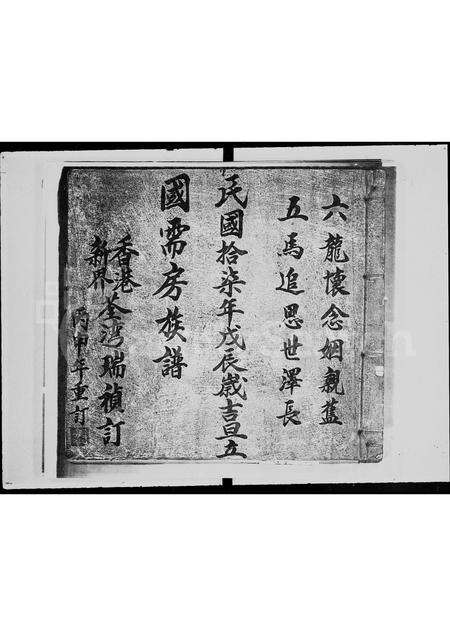 六龍懷念姻親舊
五馬追思世澤長
民國拾柒年戊辰歲吉旦立
國需房族譜
香港
新界
荃灣瑞禎訂
丙申年重訂